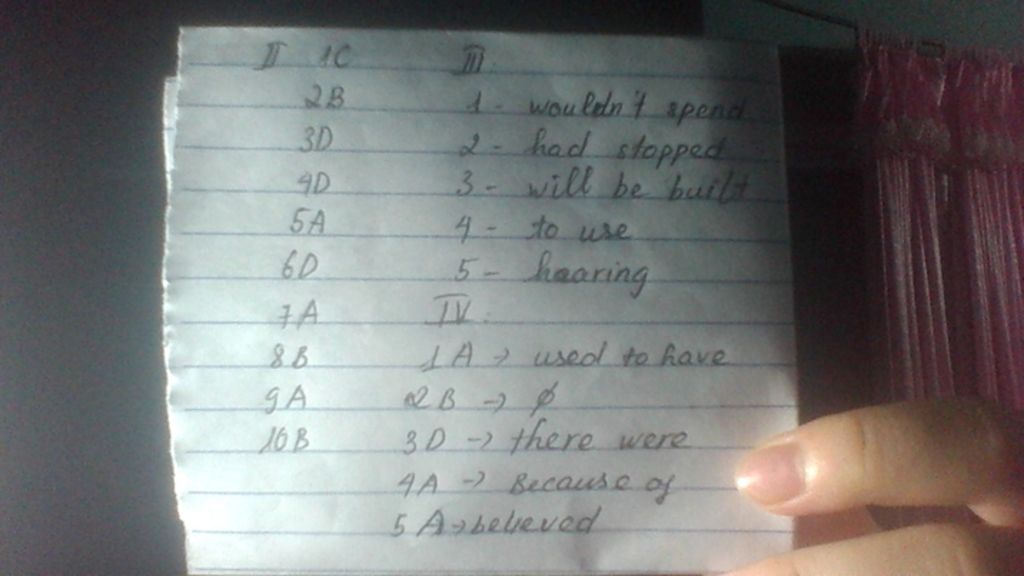 II 1C III.
2B 1 - wouldn't spend
3D 2 - had stopped
4D 3 - will be built
5A 4 - to use
6D 5 - hearing
7A IV.
8B 1A → used to have
9A 2B → ∅
10B 3D → there were
4A → Because of
5A → believed